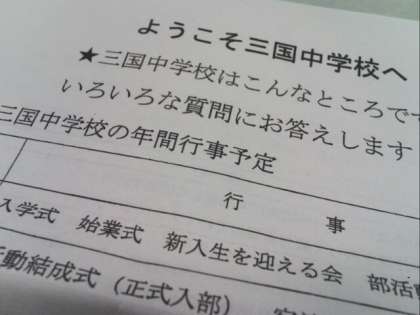 ようこそ三国中学校へ
★三国中学校はこんなところです
いろいろな質問にお答えします
三国中学校の年間行事予定
行　　事
入学式　始業式　新入生を迎える会　部活
動結成式（正式入部）